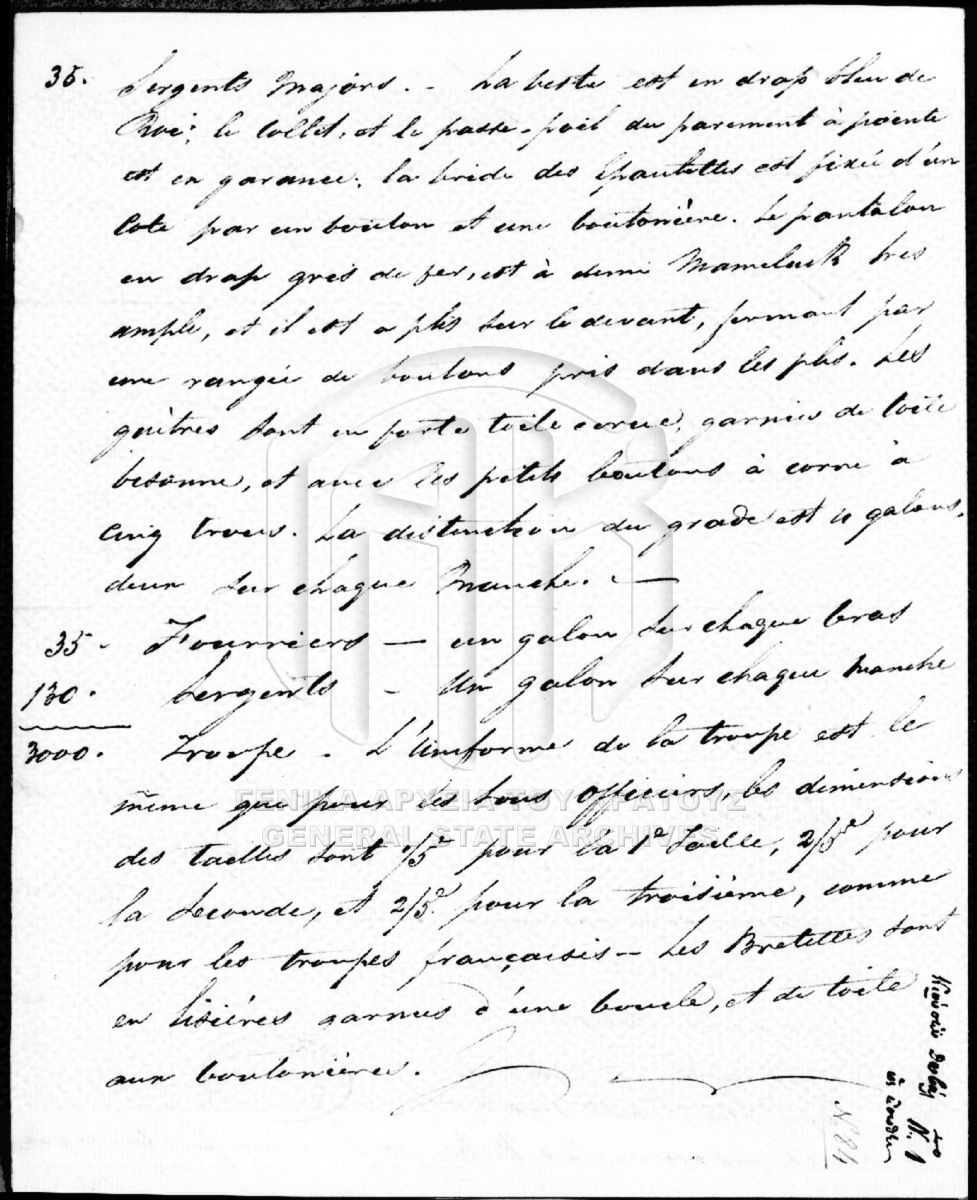 35. Sergents Majors. - La veste est en drap bleu de
Roi; le Collet, et le passe-poil du parement à pointe
est en garance. la bride des Epaulettes est fixée d'un
Coté par un bouton et une boutonière. Le pantalon
en drap gris de fer, est à demi Mameluck tres
ample, et il est a plis sur le devant, fermant par
une rangée de boutons pris dans les plis. Les
guêtres sont en forte toile ecrue, garnies de toile
bisonne, et avec les petits boutons à corne à
Cinq trous. La distinction du grade est galons,
deux sur chaque Manche. —
35 - Fourriers — un galon sur chaque bras
130. Sergents - un galon sur chaque manche
3000. Troupe - L'uniforme de la troupe est le
même que pour les sous officiers, les dimensions
des tailles sont 1/5e pour la 1e Taille, 2/5e pour
la seconde, et 2/5e pour la troisième, comme
pour les troupes françaises — Les Bretelles sont
en lisières garnies d'une boucle, et de toile
aux boutonières.
N. 1
N. 84
ΓΕΝΙΚΑ ΑΡΧΕΙΑ ΤΟΥ ΚΡΑΤΟΥΣ
GENERAL STATE ARCHIVES